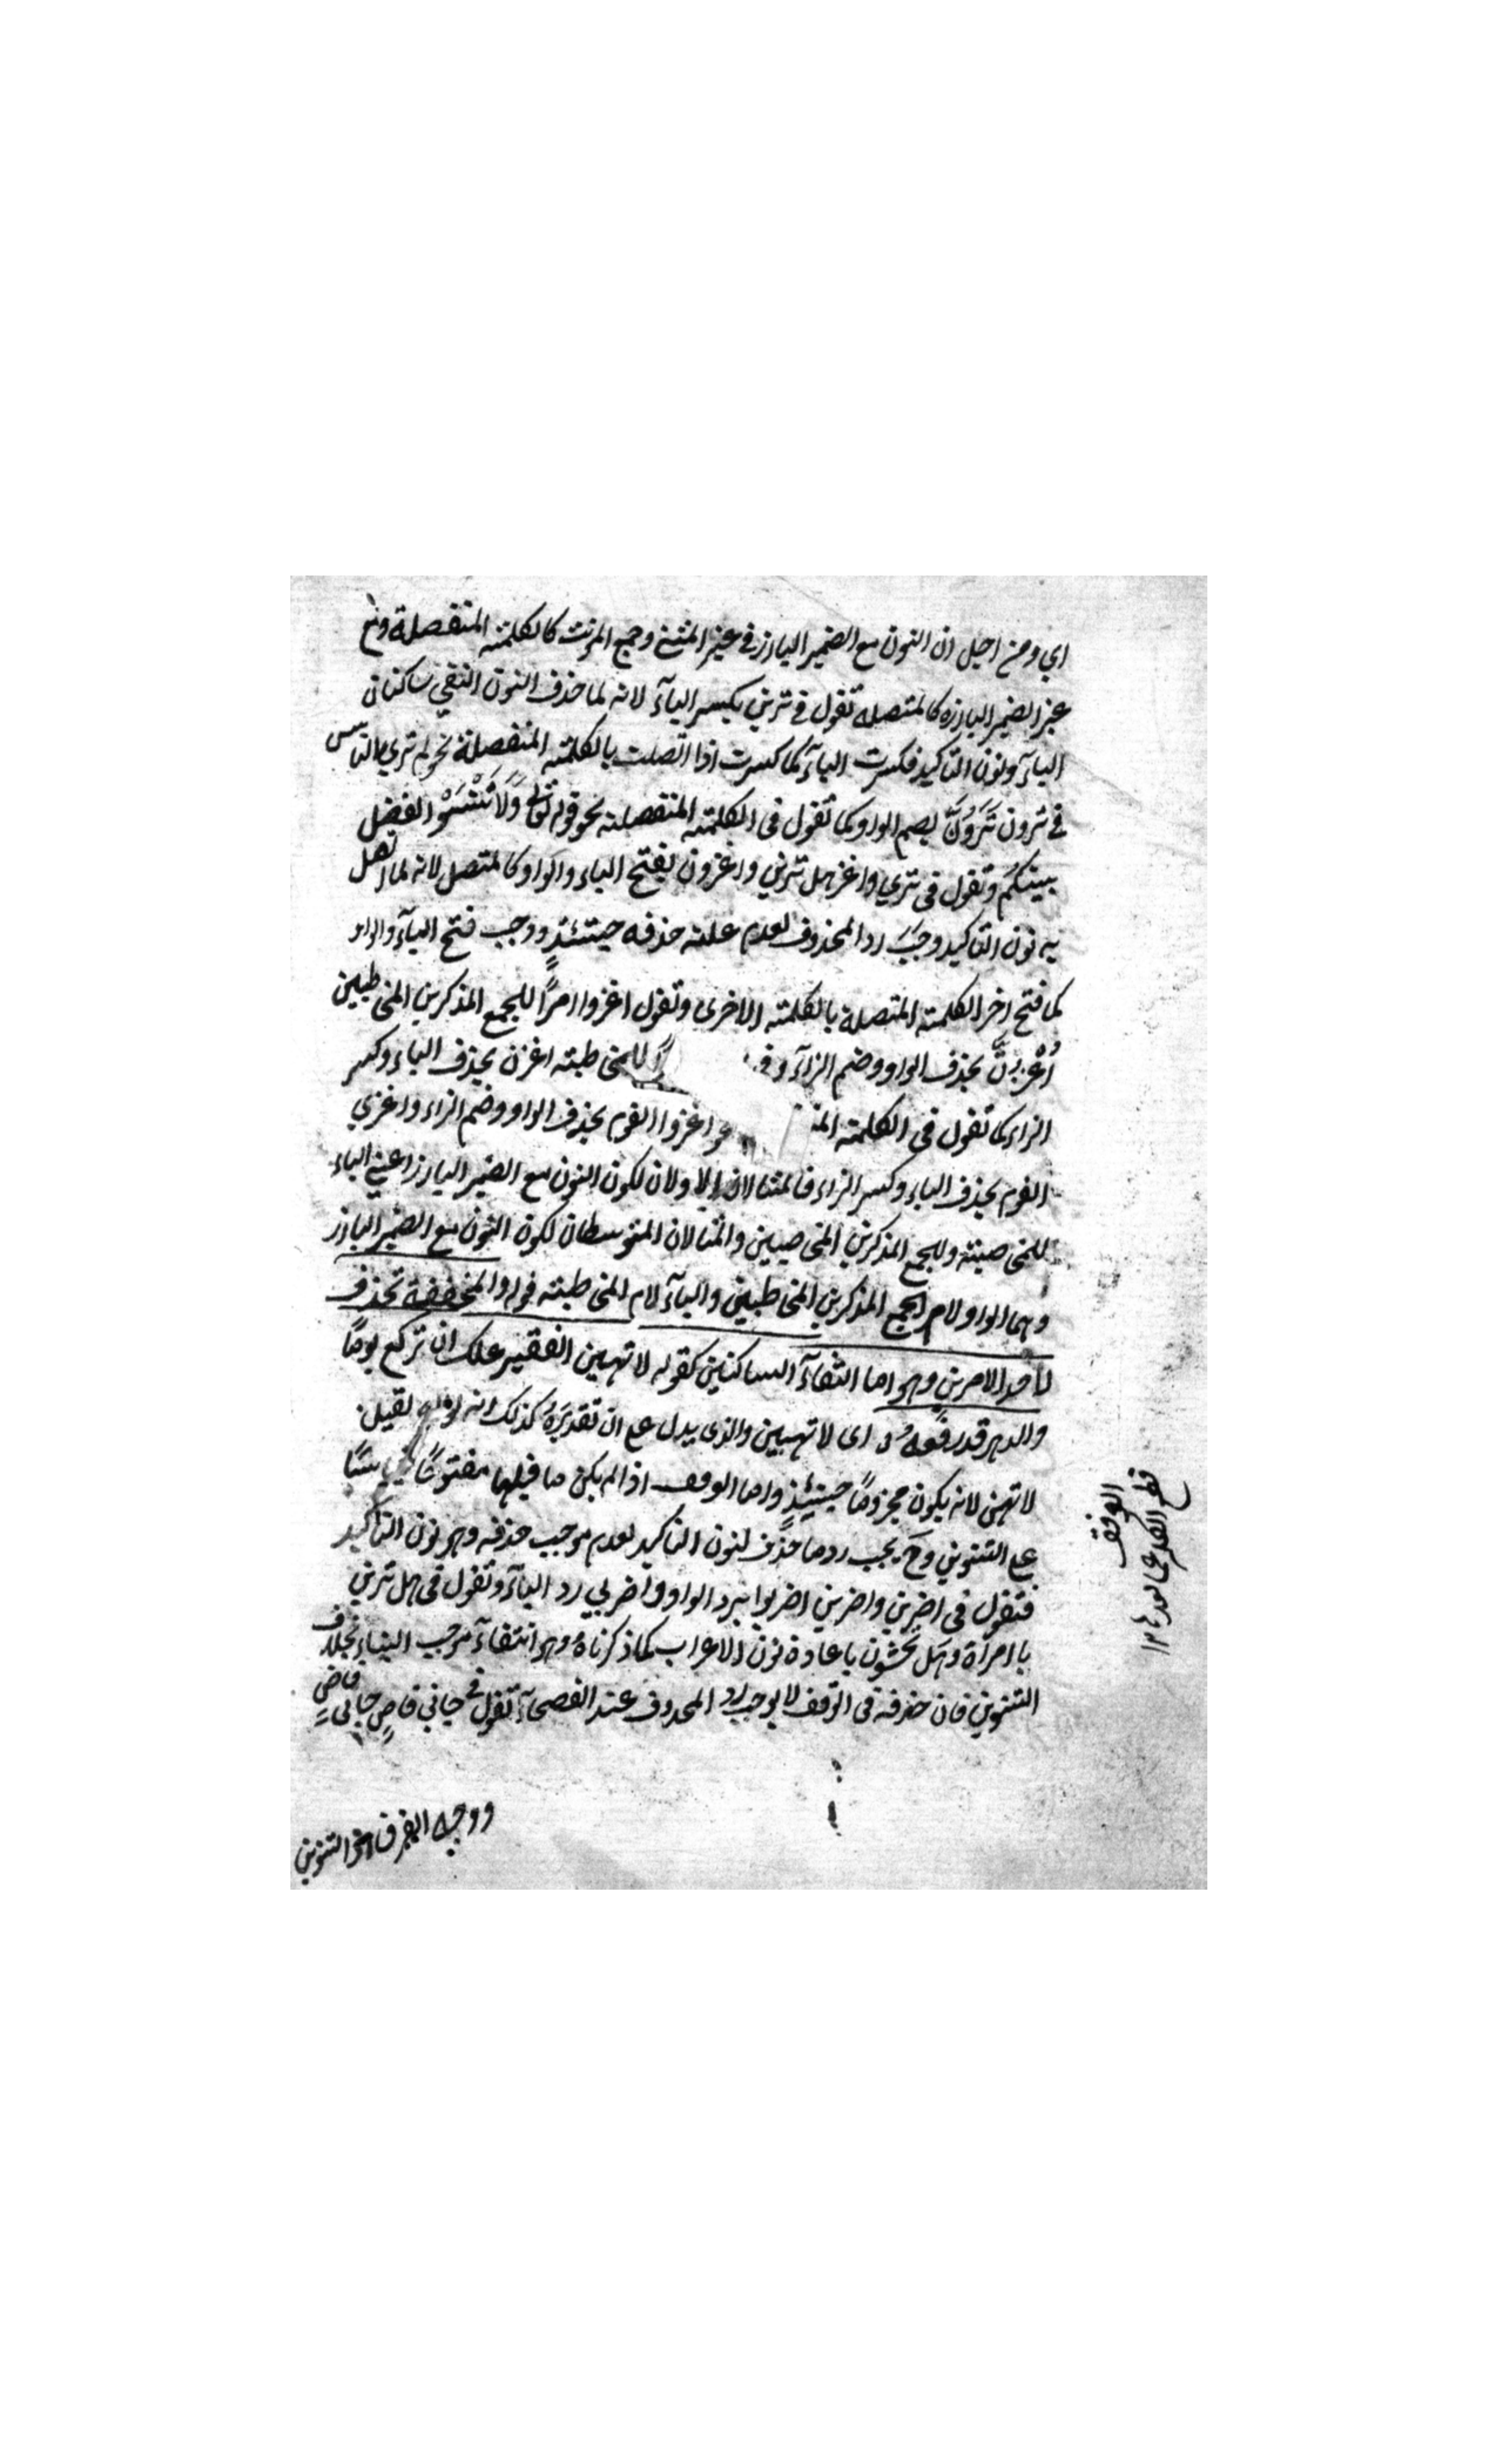 اي ومن اجل ان النون مع الضمير البارز في غير المثنى وجمع المؤنث كالكلمة المنفصلة ومع
غير الضمير البارزه كالمتصله تقول في ترين بكسر اليآء لانه لما حذف النون التقي ساكنان
اليآء ونون التاكيد فكسرت اليآء كما كسرت اذا اتصلت بالكلمة المنفصلة نحو لم تري الناس
في ترون تَرَوُنَّ بضم الواو كما تقول في الكلمة المنفصلة نحو قوله تعالى وَلَا تَنْسَوُا الفضل
بينكُم وتقول في تري واغز هل ترين واغزون بفتح الياء والواو كالمتصل لانه لما اتصل
به نون التاكيد وجَبَ رد المحذوف لعدم علة حذفه حينئذٍ ووجب فتح اليآء والواو
كما فتح اخر الكلمة المتصلة بالكلمة الاخرى وتقول اغزوا امرًا للجمع المذكرين المخاطبين
اُغْزُنَّ بحذف الواو وضم الزآء و للمخاطبة اغزن بحذف الياء وكسر
الزاء كما تقول في الكلمة اغزوا القوم بحذف الواو وضم الزاء واغزي
القوم بحذف الياء وكسر الزاء فالمثالان الاولان لكون النون مع الضمير البارز اعني الياء
للمخاصبة وللجمع المذكرين المخاصبين والمثالان المتوسطان لكون النون مع الضمير البارز
وهما الواو لام الجمع المذكرين المخاطبين واليآء لام المخاطبة قوله والمخففة تحذف
لاحد الامرين وهو اما التقآء الساكنين كقوله لا تهين الفقير علك ان تركع يومًا
والدهر قد رفعهُ اى لا تهينن والذى يدل على ان تقديرَهُ كذلك انه لقيل
لا تهن لانه يكون مجزومًا حينئذٍ واما الوقف اذا لم يكن ما قبلها مفتوحًا قياسًا
على التنوين وح يجب رد ما حذف لنون التاكيد لعدم موجب حذفه وهو نون التاكيد
فتقول في اضربن واضربن اضربوا برد الواو واضربي برد اليآء وتقول في هل ترين
يا امرأة وهل تخشون باعادة نون الاعراب كما ذكرناهُ وهو انتفآء موجب البناء بخلاف
التنوين فان حذفه في الوقف لا يوجب رد المحذوف عند الفصحآء تقول في جاني قاصٍ جاني قاض
ووجه الفرق ان التنوين
الوقف